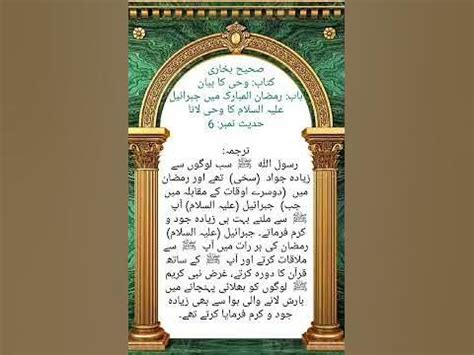 صحیح بخاری
کتاب: وحی کا بیان
باب: رمضان المبارک میں جبرائیل
علیہ السلام کا وحی لانا
حدیث نمبر: 6
ترجمہ:
رسول اللہ ﷺ سب لوگوں سے
زیادہ جواد (سخی) تھے اور رمضان
میں (دوسرے اوقات کے مقابلہ میں
جب) جبرائیل (علیہ السلام) آپ
ﷺ سے ملتے بہت ہی زیادہ جود و
کرم فرماتے۔ جبرائیل (علیہ السلام)
رمضان کی ہر رات میں آپ ﷺ سے
ملاقات کرتے اور آپ ﷺ کے ساتھ
قرآن کا دورہ کرتے، غرض نبی کریم
ﷺ لوگوں کو بھلائی پہنچانے میں
بارش لانے والی ہوا سے بھی زیادہ
جود و کرم فرمایا کرتے تھے۔